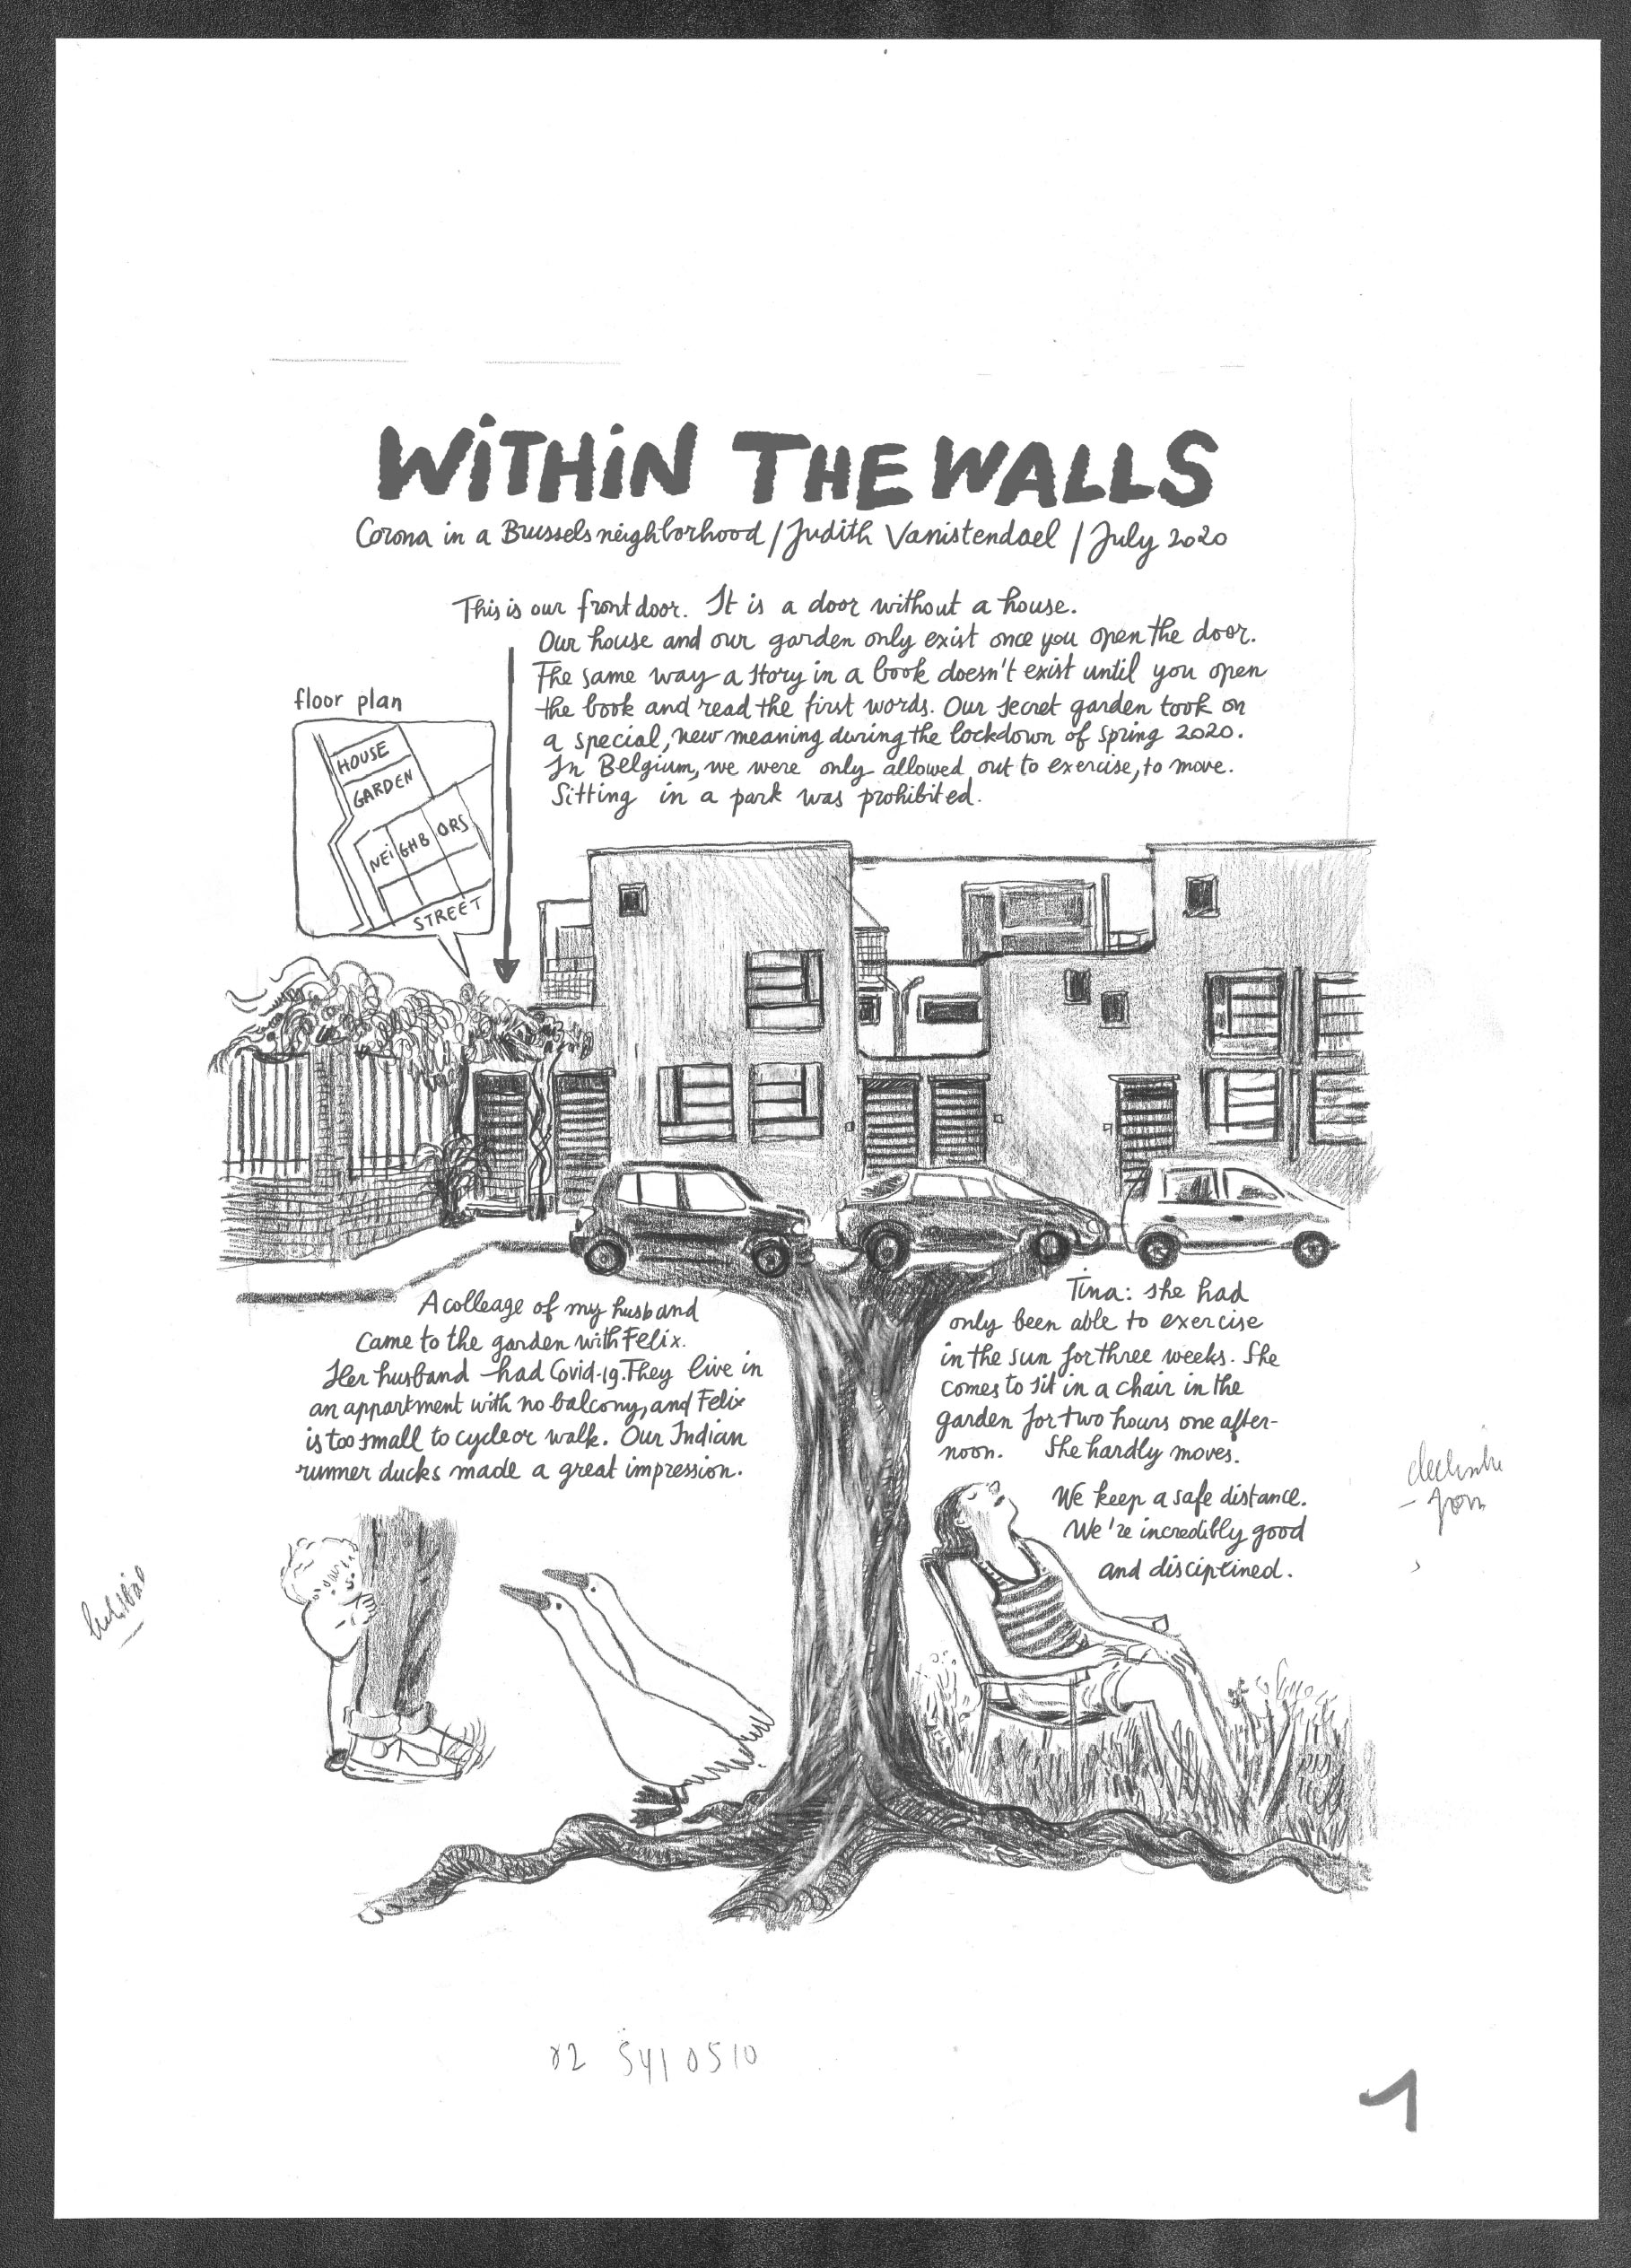 WiTHiN THE WALLS
Corona in a Brussels neighborhood / Judith Vanistendael / July 2020
This is our front door. It is a door without a house.
Our house and our garden only exist once you open the door.
The same way a story in a book doesn't exist until you open
the book and read the first words. Our secret garden took on
a special, new meaning during the lockdown of spring 2020.
In Belgium, we were only allowed out to exercise, to move.
Sitting in a park was prohibited.
floor plan
HOUSE
GARDEN
NEiGHBORS
STREET
A colleage of my husband
came to the garden with Felix.
Her husband had Covid-19. They live in
an appartment with no balcony, and Felix
is too small to cycle or walk. Our Indian
runner ducks made a great impression.
Tina: she had
only been able to exercise
in the sun for three weeks. She
comes to sit in a chair in the
garden for two hours one after-
noon. She hardly moves.
We keep a safe distance.
We're incredibly good
and disciplined.
02 541 05 10
1